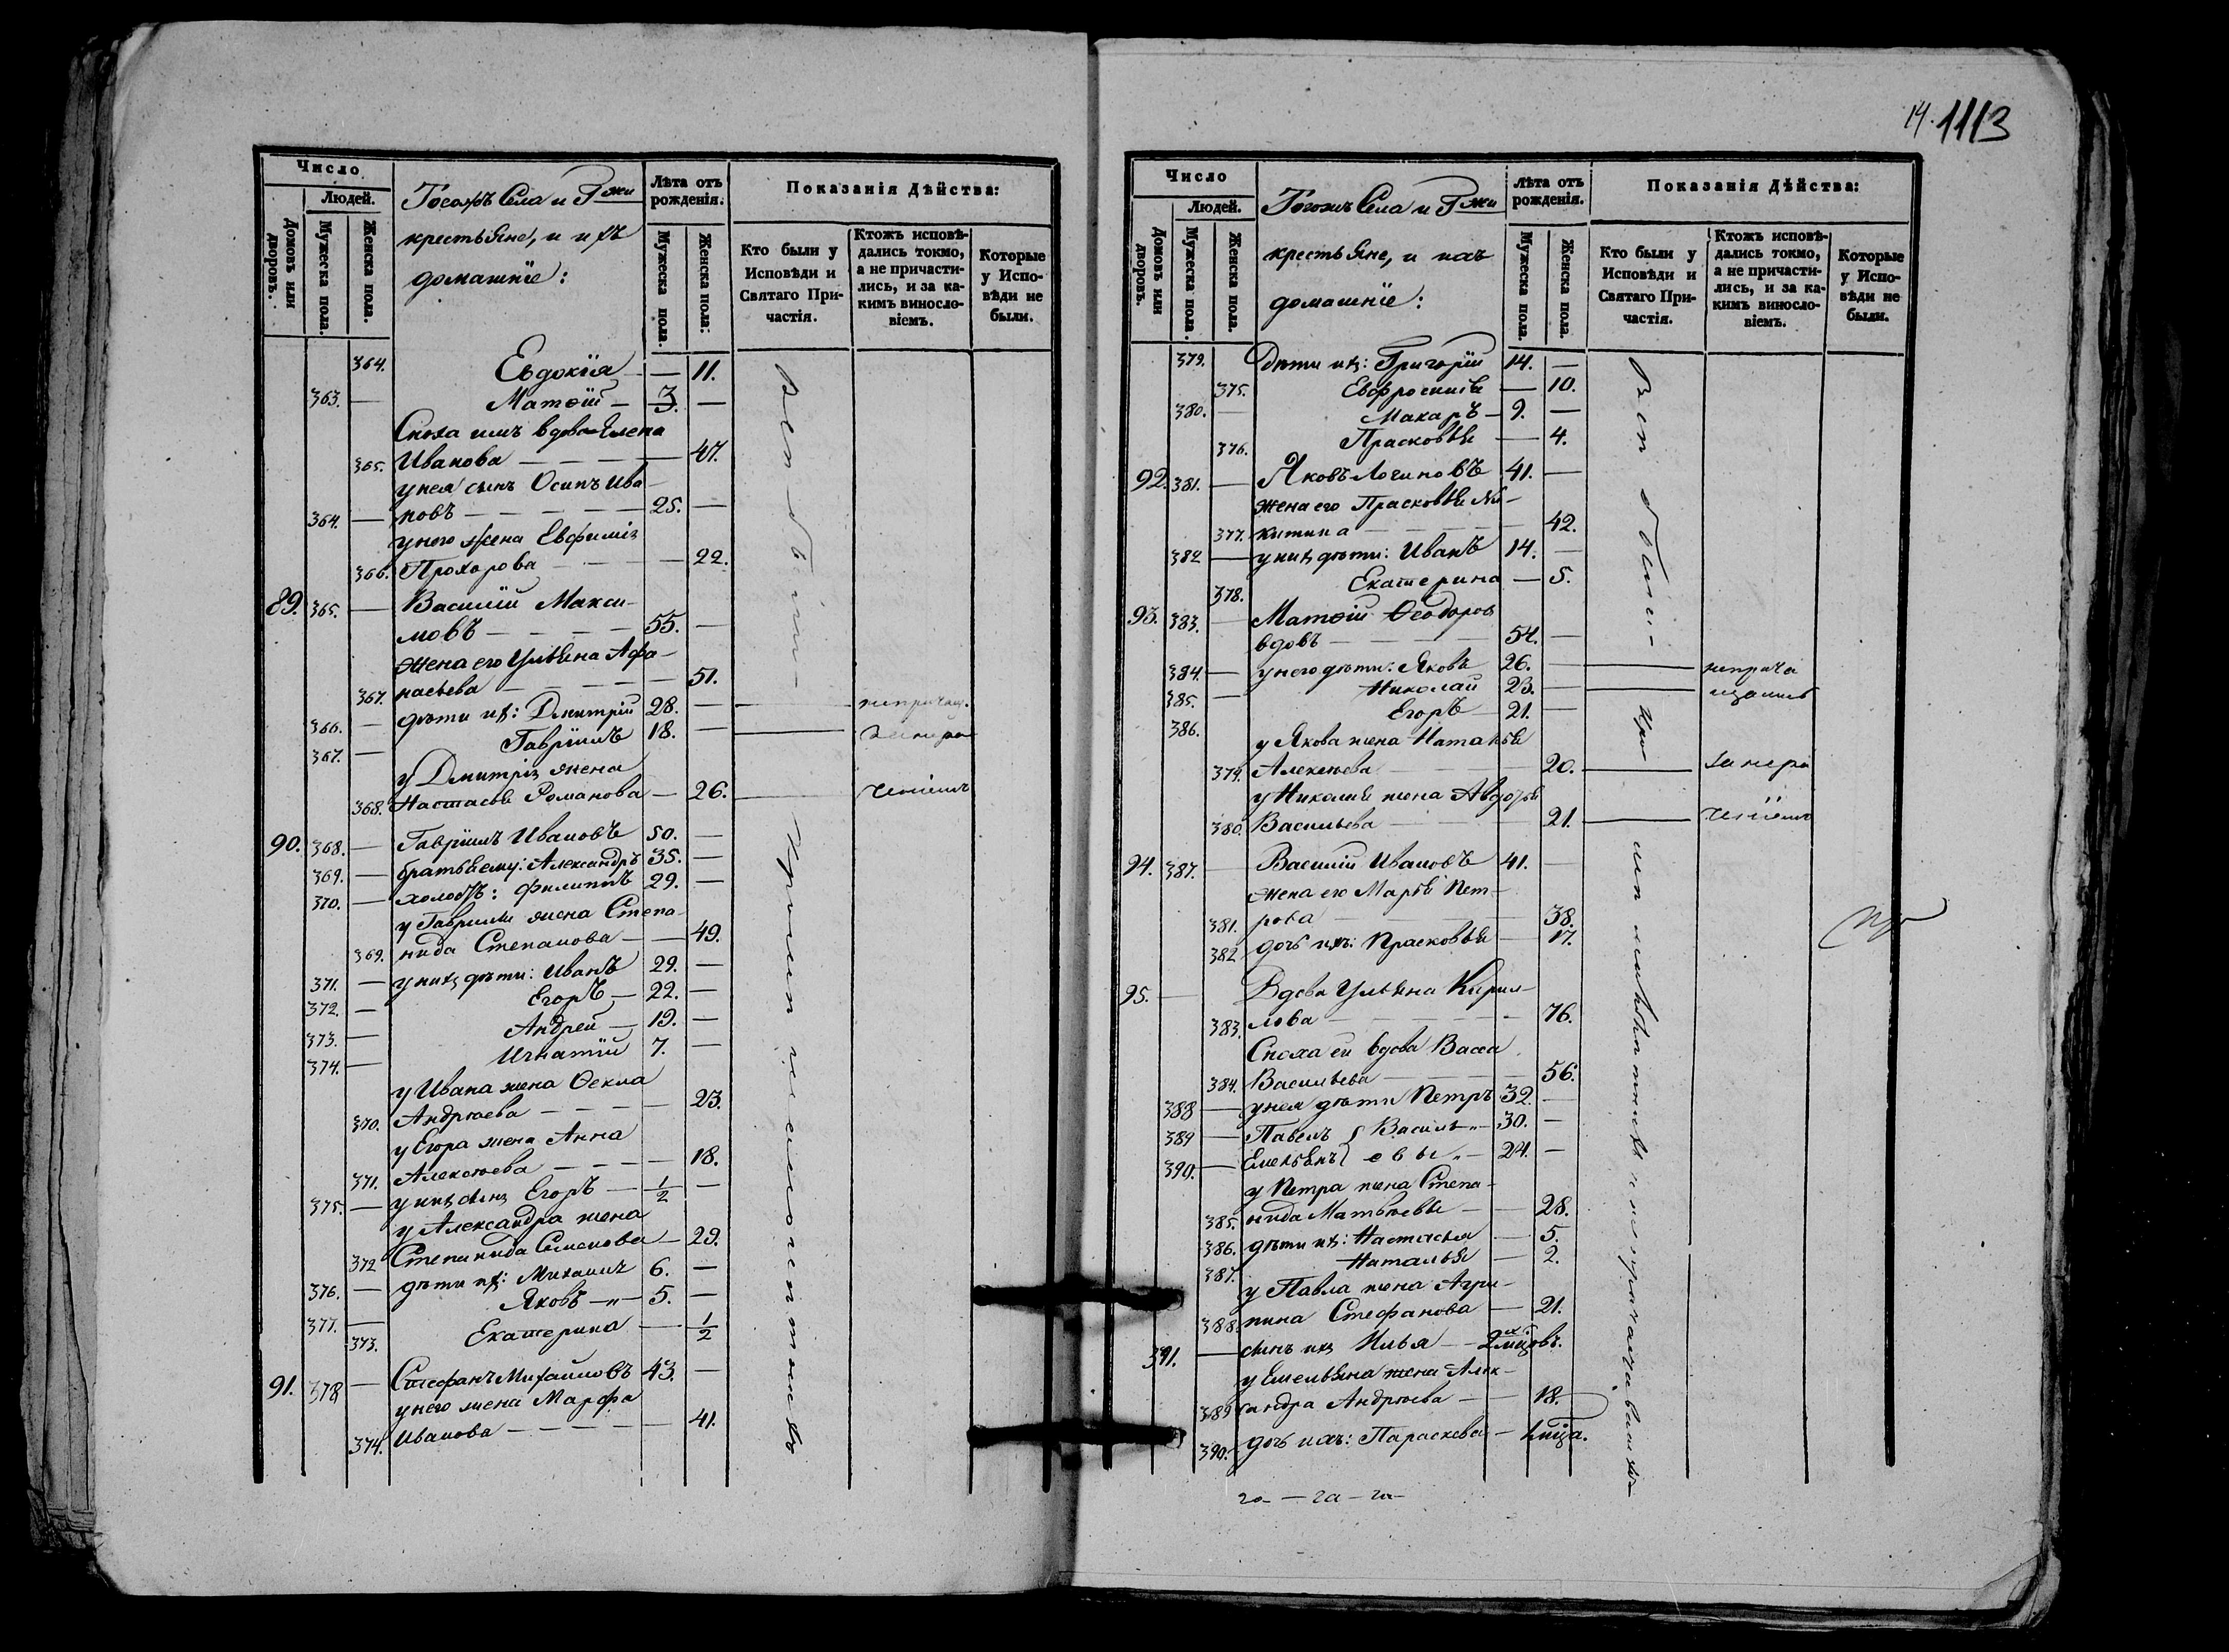 14. 1113
Число
Людей.
Домовъ или дворовъ.
Мужеска пола.
Женска пола.
Тогожъ Села и Гжи
крестьяне, и ихъ
домашніе:
Лѣта отъ рожденія.
Мужеска пола.
Женска пола:
Показанія Дѣйства:
Кто были у Исповѣди и Святаго Причастія.
Ктожъ исповѣдались токмо, а не причастились, и за какимъ винословіемъ.
Которые у Исповѣди не были.
364. Евдокія — 11.
363. — Матѳій — 3. —
Сноха имъ вдова Елена
365. Иванова — 47.
у нея сынъ Осипъ Ива-
364. — новъ — 25. —
у него жена Евфимія
366. Прохорова — 22.
89. 365. — Василій Макси-
мовъ — 55. —
жена его Ульяна Афа-
367. насьева — 51.
366. — дѣти их: Дмитрій 28. — непричащ.
367. — Гавріилъ 18. — за нера
у Дмитрія жена
368. Настасья Романова — 26. ченіемъ
90. 368. — Гавріилъ Ивановъ 50. —
369. — братья ему: Александръ 35. —
370. — холостъ: Филиппъ 29. —
у Гавріила жена Степа-
369. нида Степанова — 49.
371. — у них дѣти: Иванъ 29. —
372. — Егоръ — 22. —
373. — Андрей — 19. —
374. — Игнатій 7. —
у Ивана жена Ѳекла
370. Андреева — 23.
у Егора жена Анна
371. Алексѣева — 18.
375. — у них сынъ Егоръ — 1/2 —
у Александра жена
372 Степанида Семенова — 29.
376. — дѣти их: Михаилъ 6. —
377. — Яковъ — 5. —
373. Екатерина — 1/2
91. 378 — Стефанъ Михайловъ 43. —
у него жена Марфа
374. Иванова — 41.
Число
Людей.
Домовъ или дворовъ.
Мужеска пола.
Женска пола.
Тогожъ Села и Гжи
крестьяне, и ихъ
домашніе:
Лѣта отъ рожденія.
Мужеска пола.
Женска пола.
Показанія Дѣйства:
Кто были у Исповѣди и Святаго Причастія.
Ктожъ исповѣдались токмо, а не причастились, и за какимъ винословіемъ.
Которые у Исповѣди не были.
379. Дѣти их: Григорій 14. —
375. Евфросинія — 10.
380. — Макаръ — 9. —
376. Прасковья — 4.
92. 381. — Яковъ Логиновъ 41. —
жена его Прасковья Ни-
377. китина — 42.
382 — у них дѣти: Иванъ 14. —
378. Екатерина — 5.
93. 383. — Матѳій Ѳеодоров
вдовъ — 54. —
384. — у него дѣти: Яковъ 26. — неприча
385. — Николай 23. — щались
386. Егоръ — 21. —
у Якова жена Наталья
379. Алексѣева — 20. за нера
у Николая жена Авдотья
380. Васильева — 21. ченіемъ
94. 387. — Василій Ивановъ 41. —
жена его Марья Пет-
381. рова — 38.
382 дочь ихъ: Прасковья — 17.
95. — Вдова Ульяна Кирил-
383. лова — 76.
Сноха ей вдова Васса
384. Васильева — 56.
388 — у нея дѣти Петръ 32. —
389 — Павелъ } Василь- 30. —
390. — Емельянъ } евы — 24. —
у Петра жена Степа-
385. нида Матвѣева — 28.
386. дѣти их: Настасья — 5.
387. Наталья — 2.
у Павла жена Агри-
388. пина Стефанова — 21.
391. — сынъ их Илья — 2хъ мцовъ.
у Емельяна жена Алек-
389 сандра Андреева — 18.
390. дочь ихъ: Параскева — 1 мца.
Всѣ были
Всѣ были при